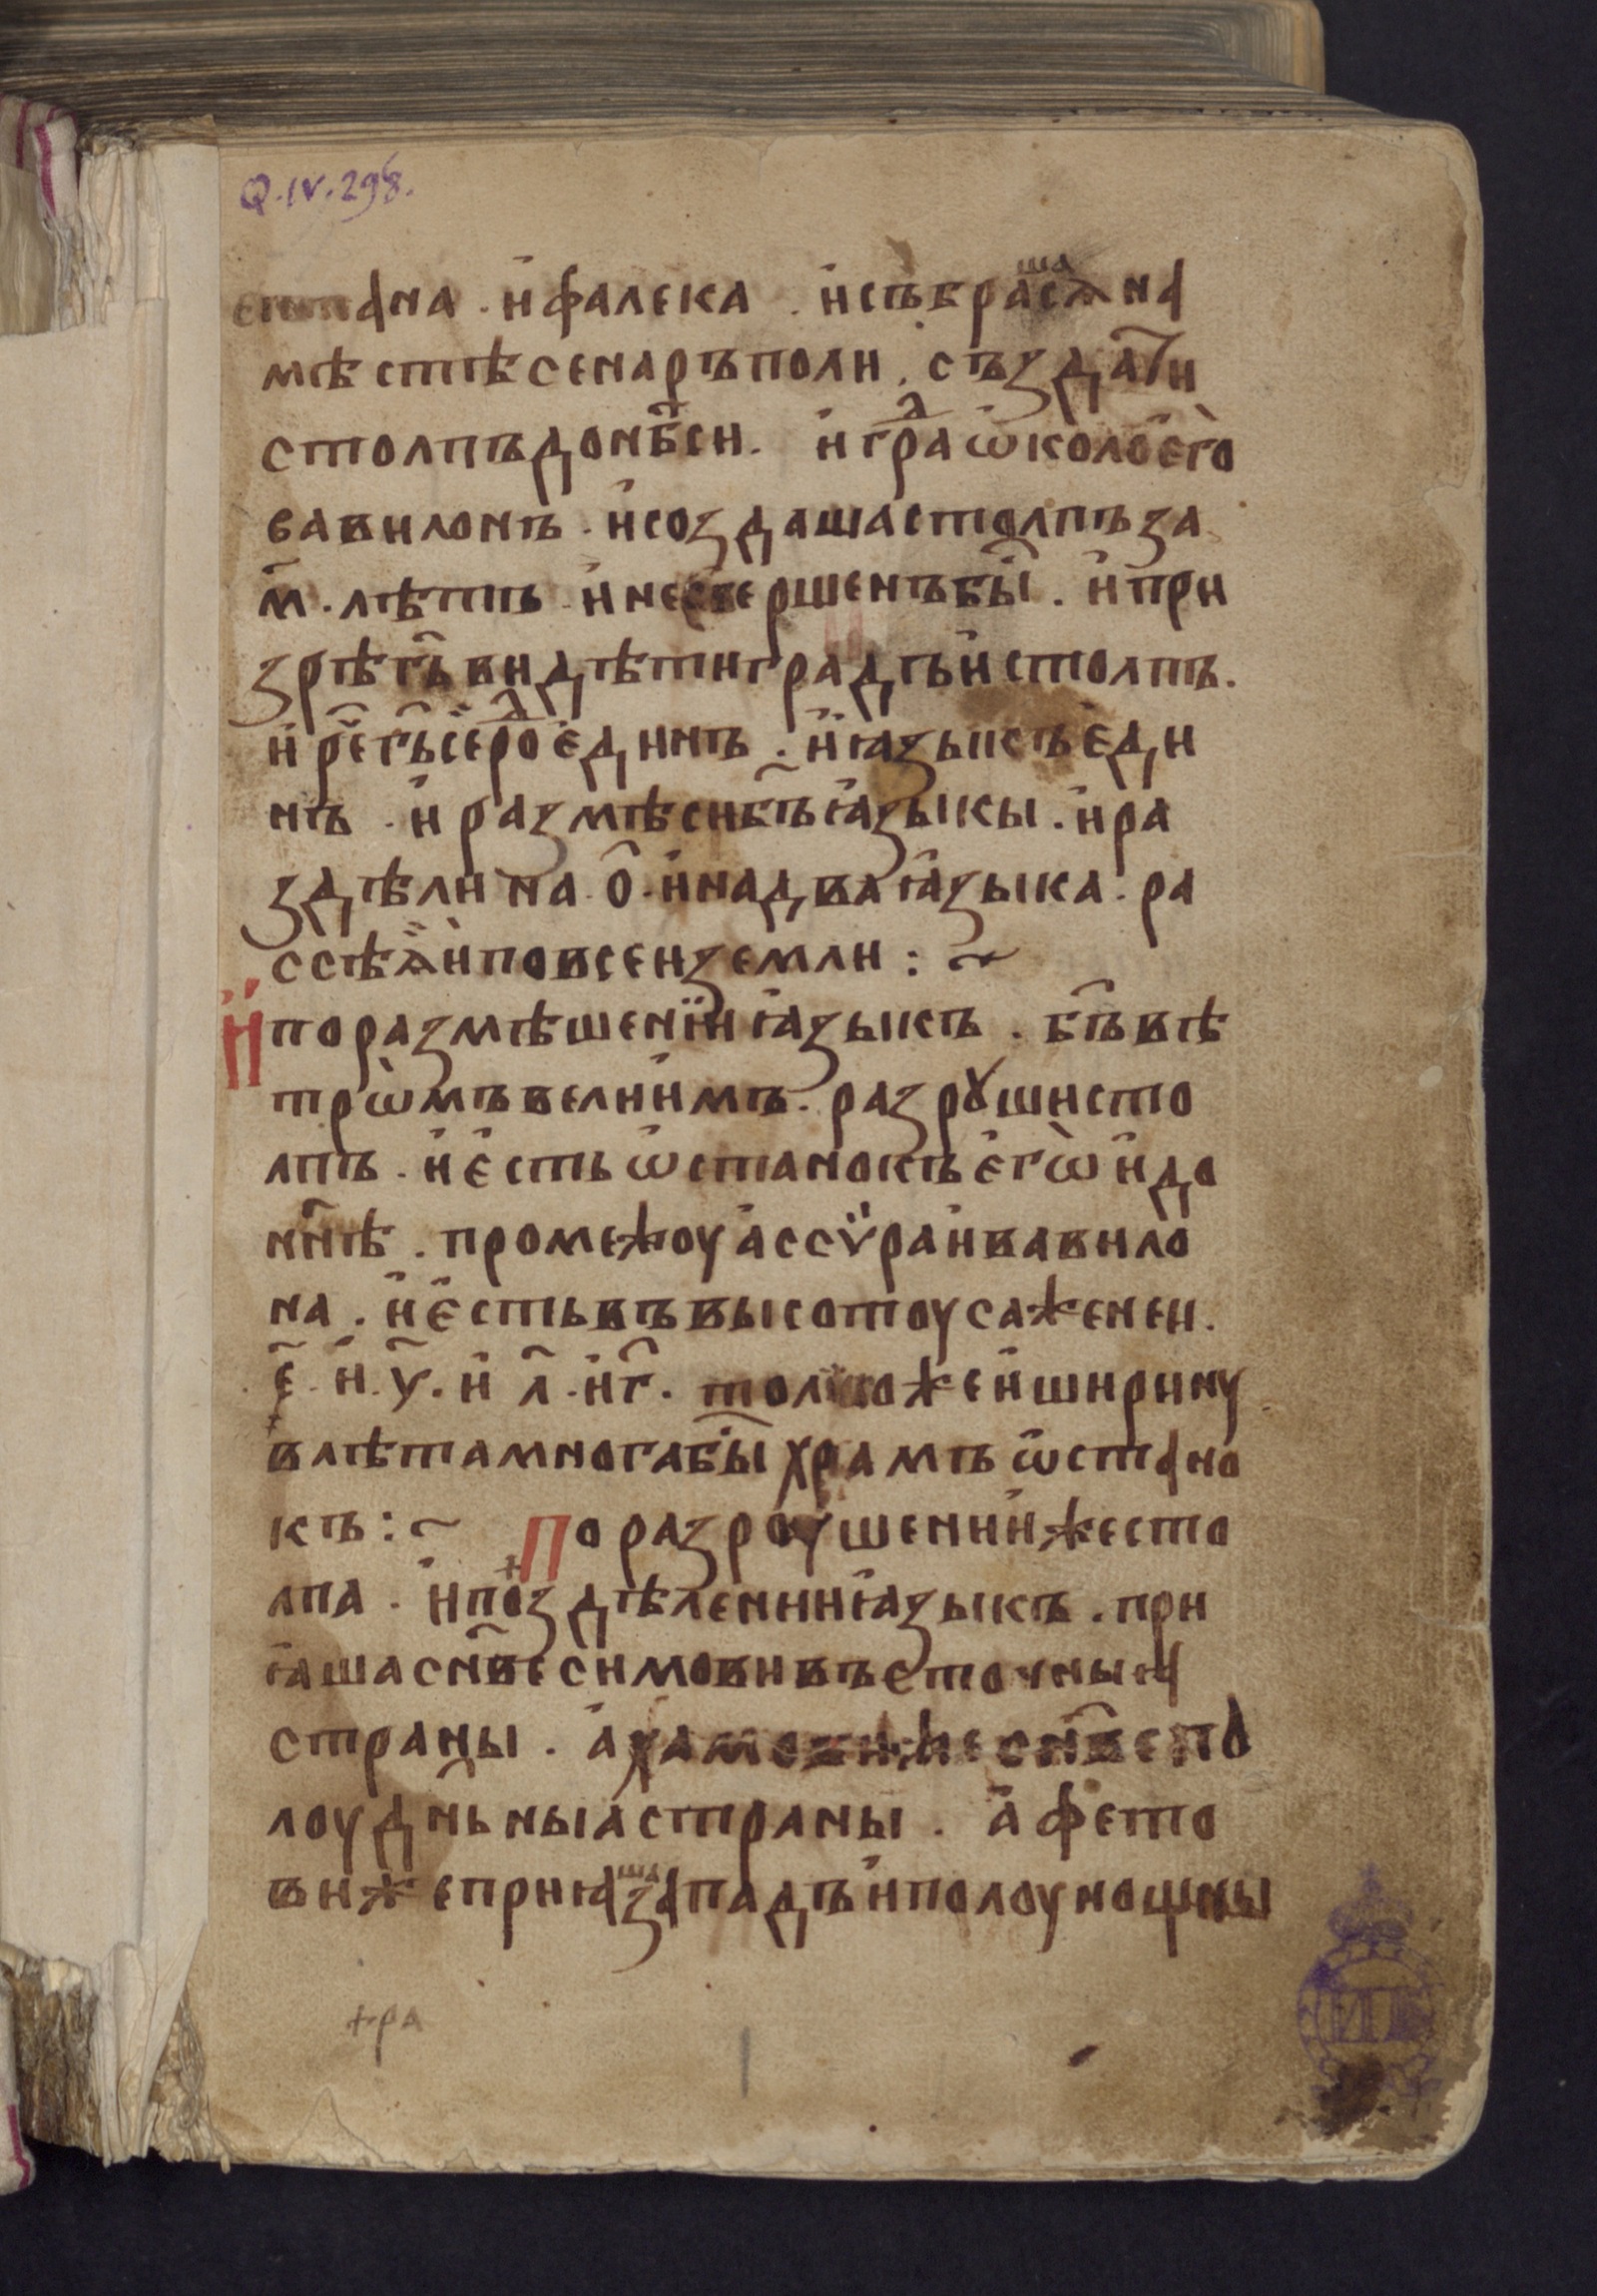 Q.IV.298.
ектана . и҆ фалека . и҆ събрашася на
мѣстѣ сенаръ поли . създа҃ти
столпъ до нб҃си . и҆ гра҃д ѡ҆коло е҆го
вавилонъ . и҆ создаша столпъ за
м҃ . лѣтъ . и҆ не свершенъ бы҃ . и҆ при
зрѣ г҃ь видѣти градъ и҆ столпъ .
и҆ ре҃ г҃ь се ро҃д е҆динъ . и҆ ꙗ҆зыкъ е҆ди
нъ . и҆ размѣси б҃ъ ꙗ҆зыкы . и҆ ра
здѣли на . о҃ . и҆ на два ꙗ҆зыка . ра
ссѣꙗ и҆ по всеи земли : ~
И҆ по размѣшенїи ꙗ҆зыкъ . б҃ъ вѣ
трѡ҆мъ велиимъ . разрꙋши сто
лпъ . и҆ е҆сть ѡ҆станокъ е҆гѡ̀ и҆ до
нн҃ѣ . промежоу а҆ссѵ̈ра и҆ вавило
на . и҆ е҆сть въ высотоу саженеи .
е҃ . и҆ . у҃ . и҆ л҃ . и҆ г҃ . толкоже и҆ ширину
в лѣта многа бы҃ храмъ ѡ҆стано
къ : ~ По разроушении же сто
лпа . и҆ по+здѣлении ꙗ҆зыкъ . при
ꙗ҆ша сн҃ве симови въсточныꙗ
страны . а҆ хамови же сн҃ве по
лоудньныꙗ страны . а҆фето
ви же приꙗша западъ и҆ полоунощны
+ра